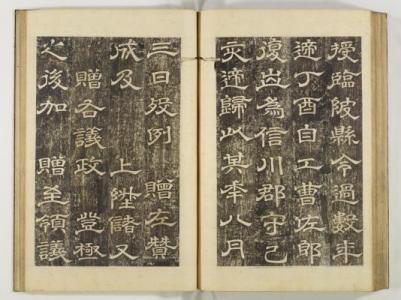 授臨陂縣令過數年
適丁酉自工曹佐郎
復出為信川郡守己
亥遞歸以其年八月
三日歿例 贈左贊
成及 上陞儲又
贈各議政 登極
之後加 贈至領議